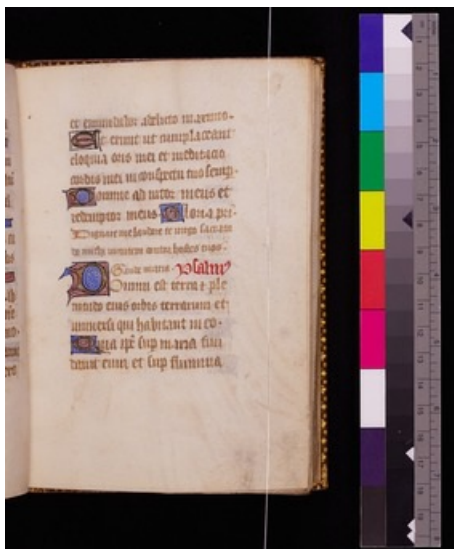 et emundabor a delicto maximo.
Et erunt ut complaceant
eloquia oris mei et meditacio
cordis mei in conspectu tuo semp̄.
Domine adiutor meus et
redemptor meus Gloria pri.
Dignare me laudare te virgo sacrata
da michi virtutem contra hostes tuos.
Psalmꝰ
Domini est terra et ple
nitudo eius orbis terrarum et
universi qui habitant in eo.
Quia ip̄e sup maria fun
davit eum et sup flumina